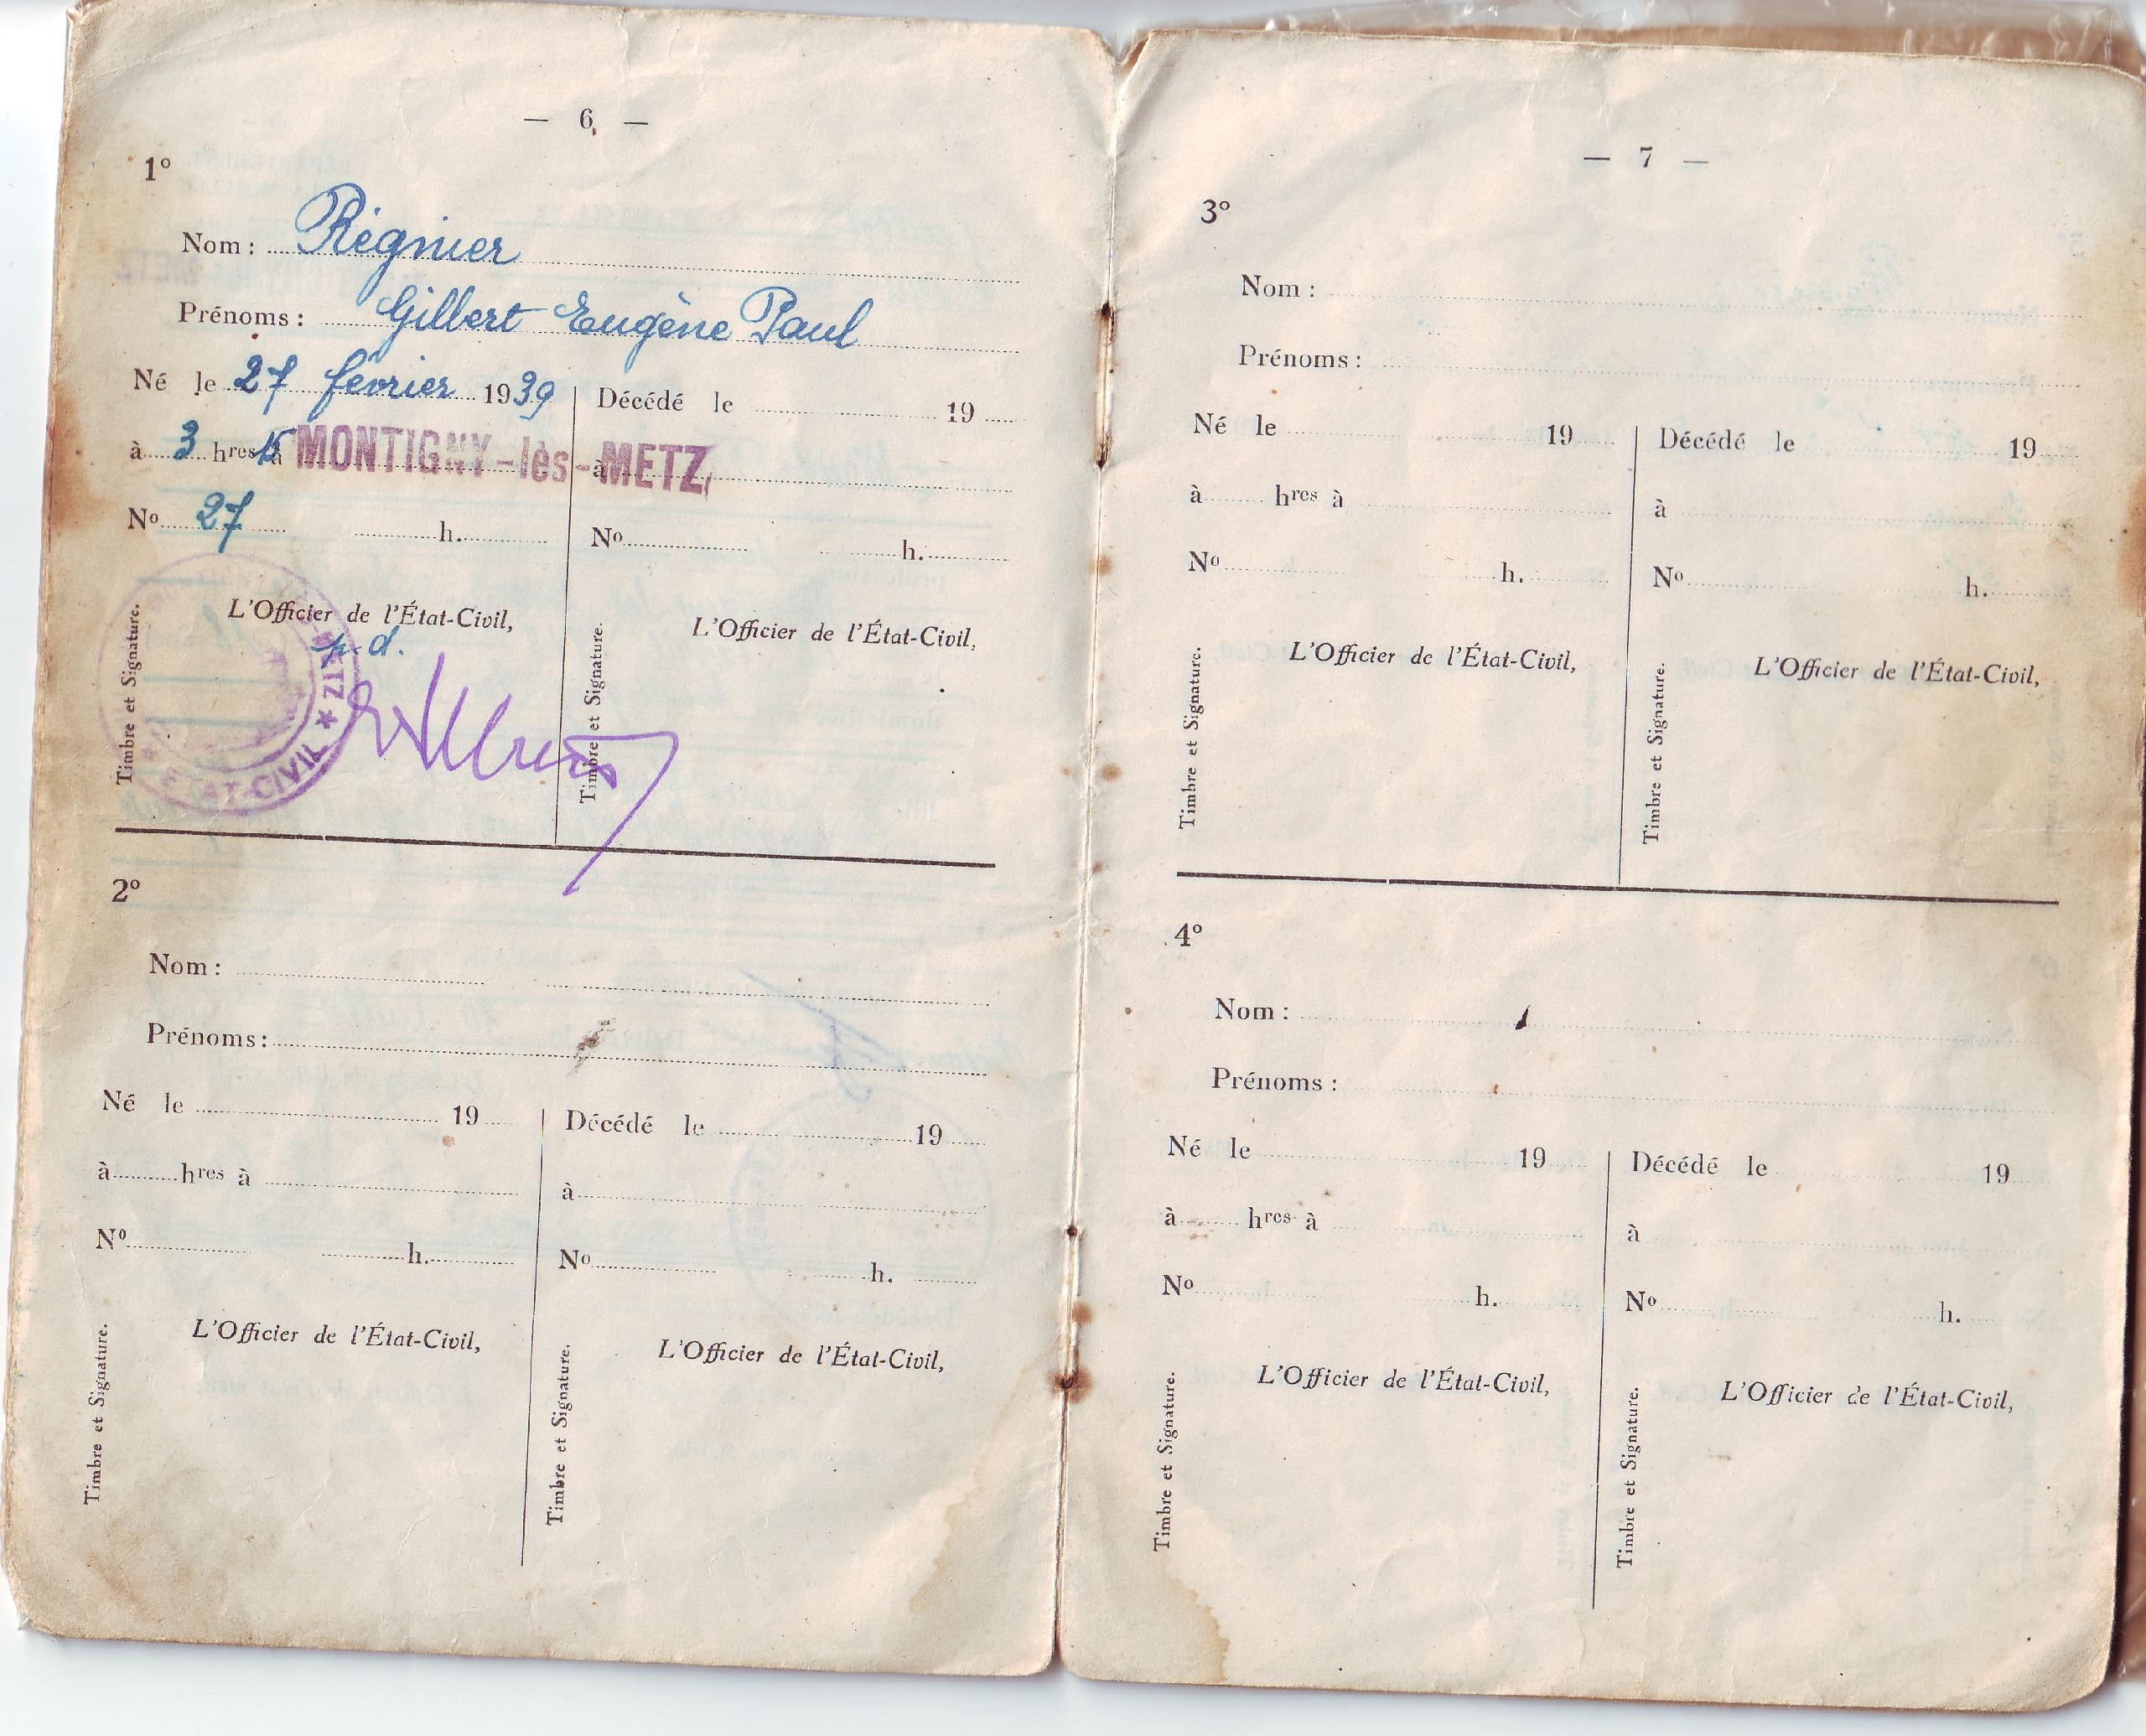 — 6 —
1º
Nom : Régnier
Prénoms : Gilbert Eugène Paul
Né le 27 février 1939
à 3 hres 15 à MONTIGNY-lès-METZ
Nº 27 h.
L'Officier de l'État-Civil,
p.d.
Timbre et Signature.
METZ ★ ETAT-CIVIL ★
Décédé le 19
à
Nº h.
L'Officier de l'État-Civil,
Timbre et Signature.
2º
Nom :
Prénoms :
Né le 19
à hres à
Nº h.
L'Officier de l'État-Civil,
Timbre et Signature.
Décédé le 19
à
Nº h.
L'Officier de l'État-Civil,
Timbre et Signature.
— 7 —
3º
Nom :
Prénoms :
Né le 19
à hres à
Nº h.
L'Officier de l'État-Civil,
Timbre et Signature.
Décédé le 19
à
Nº h.
L'Officier de l'État-Civil,
Timbre et Signature.
4º
Nom :
Prénoms :
Né le 19
à hres à
Nº h.
L'Officier de l'État-Civil,
Timbre et Signature.
Décédé le 19
à
Nº h.
L'Officier de l'État-Civil,
Timbre et Signature.